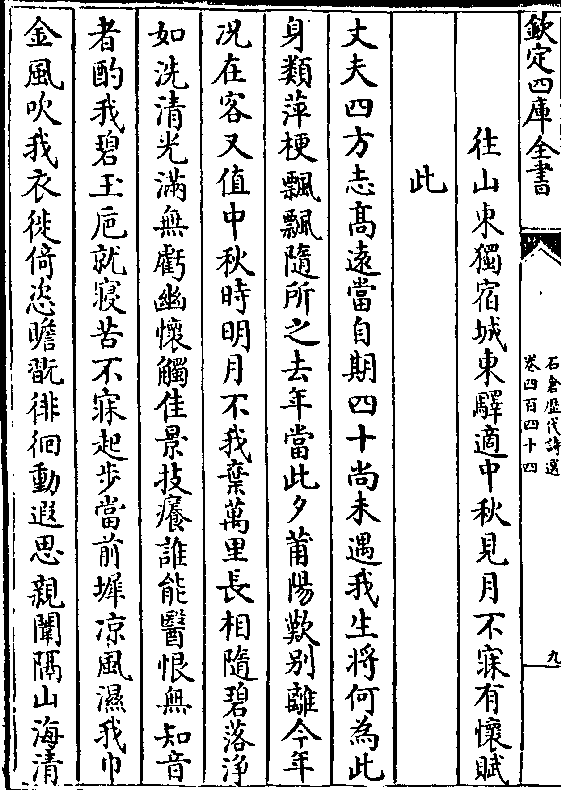 欽定四庫全書
石倉歴代詩選
卷四百四十四
九
往山東獨宿城東驛適中秋見月不寐有懷賦
此
丈夫四方志髙逺當自期四十尚未遇我生將何為此
身類萍梗飄飄隨所之去年當此夕莆陽歎别離今年
况在客又值中秋時明月不我棄萬里長相隨碧落浄
如洗清光滿無虧幽懷觸佳景技癢誰能醫恨無知音
者酌我碧玉巵就寢苦不寐起步當前墀凉風濕我巾
金風吹我衣徙倚恣瞻翫徘徊動遐思親闈隔山海清